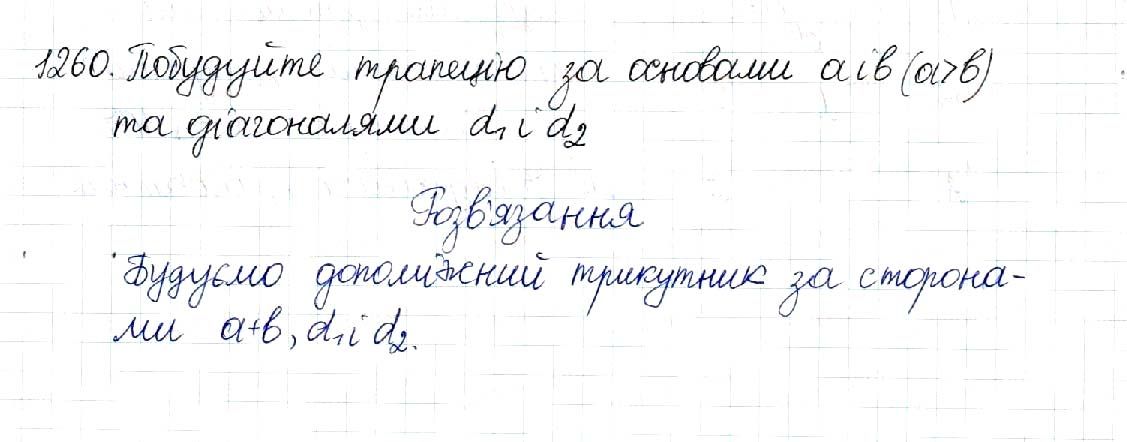 1260. Побудуйте трапецію за основами a i b (a>b)
та діагоналями d₁ i d₂
Розв'язання
Будуємо допоміжний трикутник за сторона-
ми a+b, d₁ i d₂.